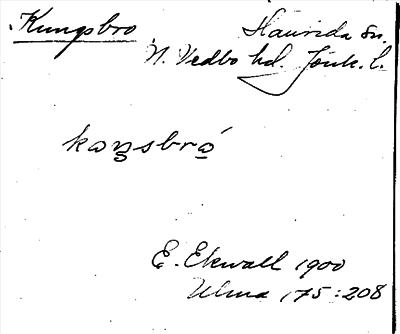 Kungsbro Haurida sn.
N. Vedbo hd. Jönk. l.
kaŋsbró̱
E. Ekwall 1900
Ulma 175:208